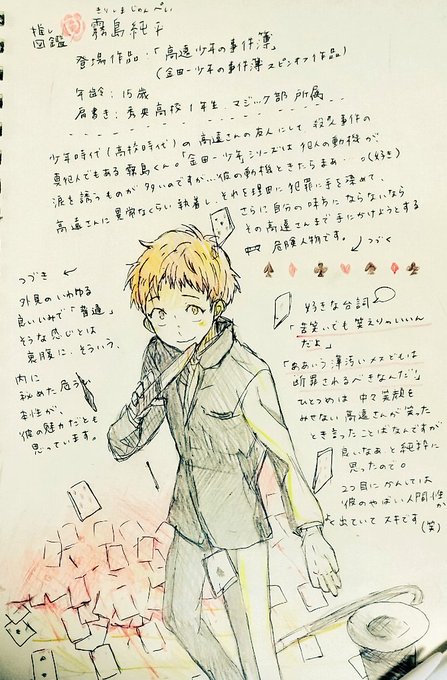 きりしまじゅんぺい
推し図鑑 霧島純平
登場作品:「高遠少年の事件簿」
(金田一少年の事件簿スピンオフ作品)
年齢:15歳
肩書き:秀央高校1年生、マジック部所属
少年時代(高校時代)の高遠さんの友人にして、殺人事件の
真犯人でもある霧島くん。「金田一少年」シリーズは犯人の動機が
涙を誘うものが多いのですが…彼の動機ときたらまあ…。(好き)
高遠さんに異常なくらい執着し、それを理由に犯罪に手を染めて、
さらに自分の味方にならないなら
その高遠さんまで手にかけようとする
危険人物です。
つづく
つづき
外見のいわゆる
良いいみで「普通」
そうな感じとは
裏腹に、そういう、
内に
秘めた危うい
本性が、
彼の魅力だとも
思っています。
好きな台詞
「苦笑いでも笑えりゃいいん
だよ」
「ああいう薄汚いメスどもは
断罪されるべきなんだ」
ひとつめは 中々笑顔を
みせない高遠さんが笑った
とき言ったことばなんですが
良いなあと純粋に
思ったので。
2つ目にかんしては
彼のやばい人間性が
よく出ていてスキです
(笑)